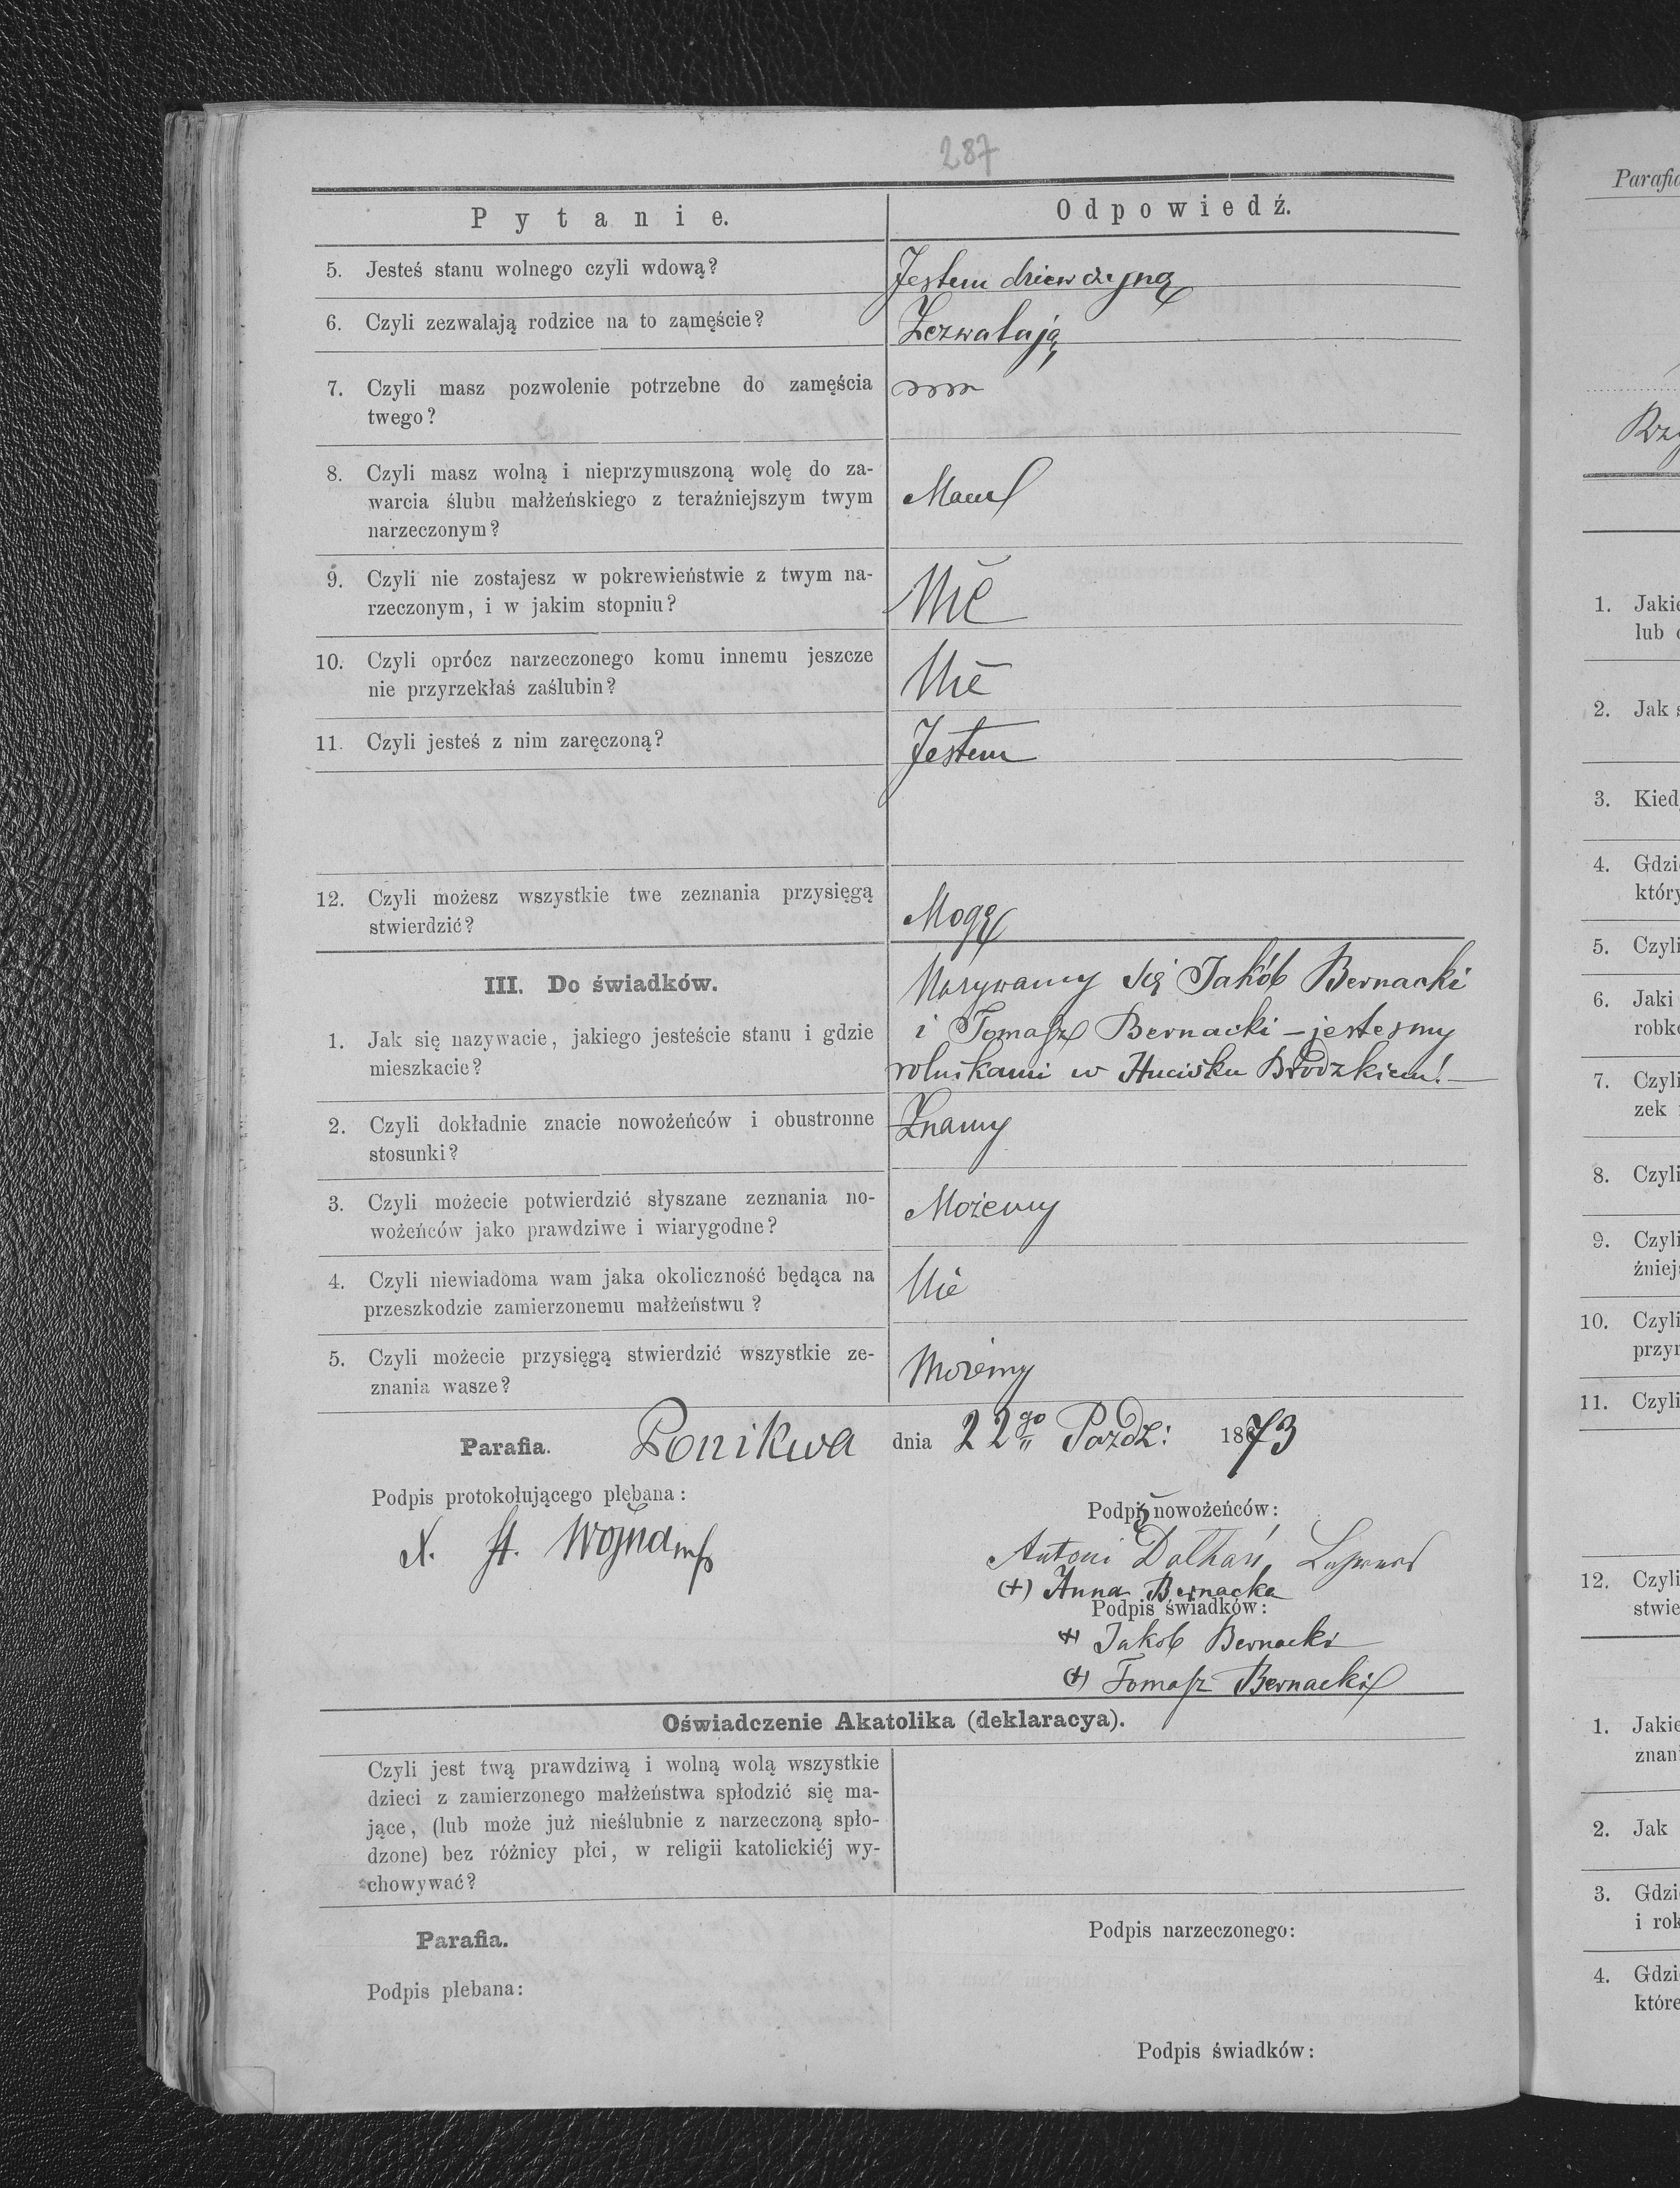 287
Pytanie. Odpowiedź.
5. Jesteś stanu wolnego czyli wdową? Jestem dziewczyną
6. Czyli zezwalają rodzice na to zamęście? Zezwalają
7. Czyli masz pozwolenie potrzebne do zamęścia
twego?
8. Czyli masz wolną i nieprzymuszoną wolę do za-
warcia ślubu małżeńskiego z teraźniejszym twym
narzeczonym? Mam
9. Czyli nie zostajesz w pokrewieństwie z twym na-
rzeczonym, i w jakim stopniu? Nie
10. Czyli oprócz narzeczonego komu innemu jeszcze
nie przyrzekłaś zaślubin? Nie
11. Czyli jesteś z nim zaręczoną? Jestem
12. Czyli możesz wszystkie twe zeznania przysięgą
stwierdzić? Mogę
III. Do świadków.
1. Jak się nazywacie, jakiego jesteście stanu i gdzie
mieszkacie?
Nazywamy się Jakób Bernacki
i Tomasz Bernacki – jestesmy
rolnikami w Hucisku Brodzkiem! –
2. Czyli dokładnie znacie nowożeńców i obustronne
stosunki? Znamy
3. Czyli możecie potwierdzić słyszane zeznania no-
wożeńców jako prawdziwe i wiarygodne? Możemy
4. Czyli niewiadoma wam jaka okoliczność będąca na
przeszkodzie zamierzonemu małżeństwu? Nie
5. Czyli możecie przysięgą stwierdzić wszystkie ze-
znania wasze? Możemy
Parafia. Ponikwa dnia 22go Paźdz: 1873
Podpis protokołującego plebana:
X. St.
Podpis nowożeńców:
Antoni
(+) Anna Bernacka
Podpis świadków:
+ Jakób Bernacki
(+) Tomasz Bernacki
Oświadczenie Akatolika (deklaracya).
Czyli jest twą prawdziwą i wolną wolą wszystkie
dzieci z zamierzonego małżeństwa spłodzić się ma-
jące, (lub może już nieślubnie z narzeczoną spło-
dzone) bez różnicy płci, w religii katolickiéj wy-
chowywać?
Parafia.
Podpis narzeczonego:
Podpis plebana:
Podpis świadków:
1. Jakie
lub
2. Jak
3. Kied
4. Gdzi
któr
5. Czyli
6. Jaki
robk
7. Czyli
zek
8. Czyli
9. Czyli
źniej
10. Czyli
przyr
11. Czyli
12. Czyli
stwie
1. Jakie
znan
2. Jak
3. Gdzi
i rok
4. Gdzi
które